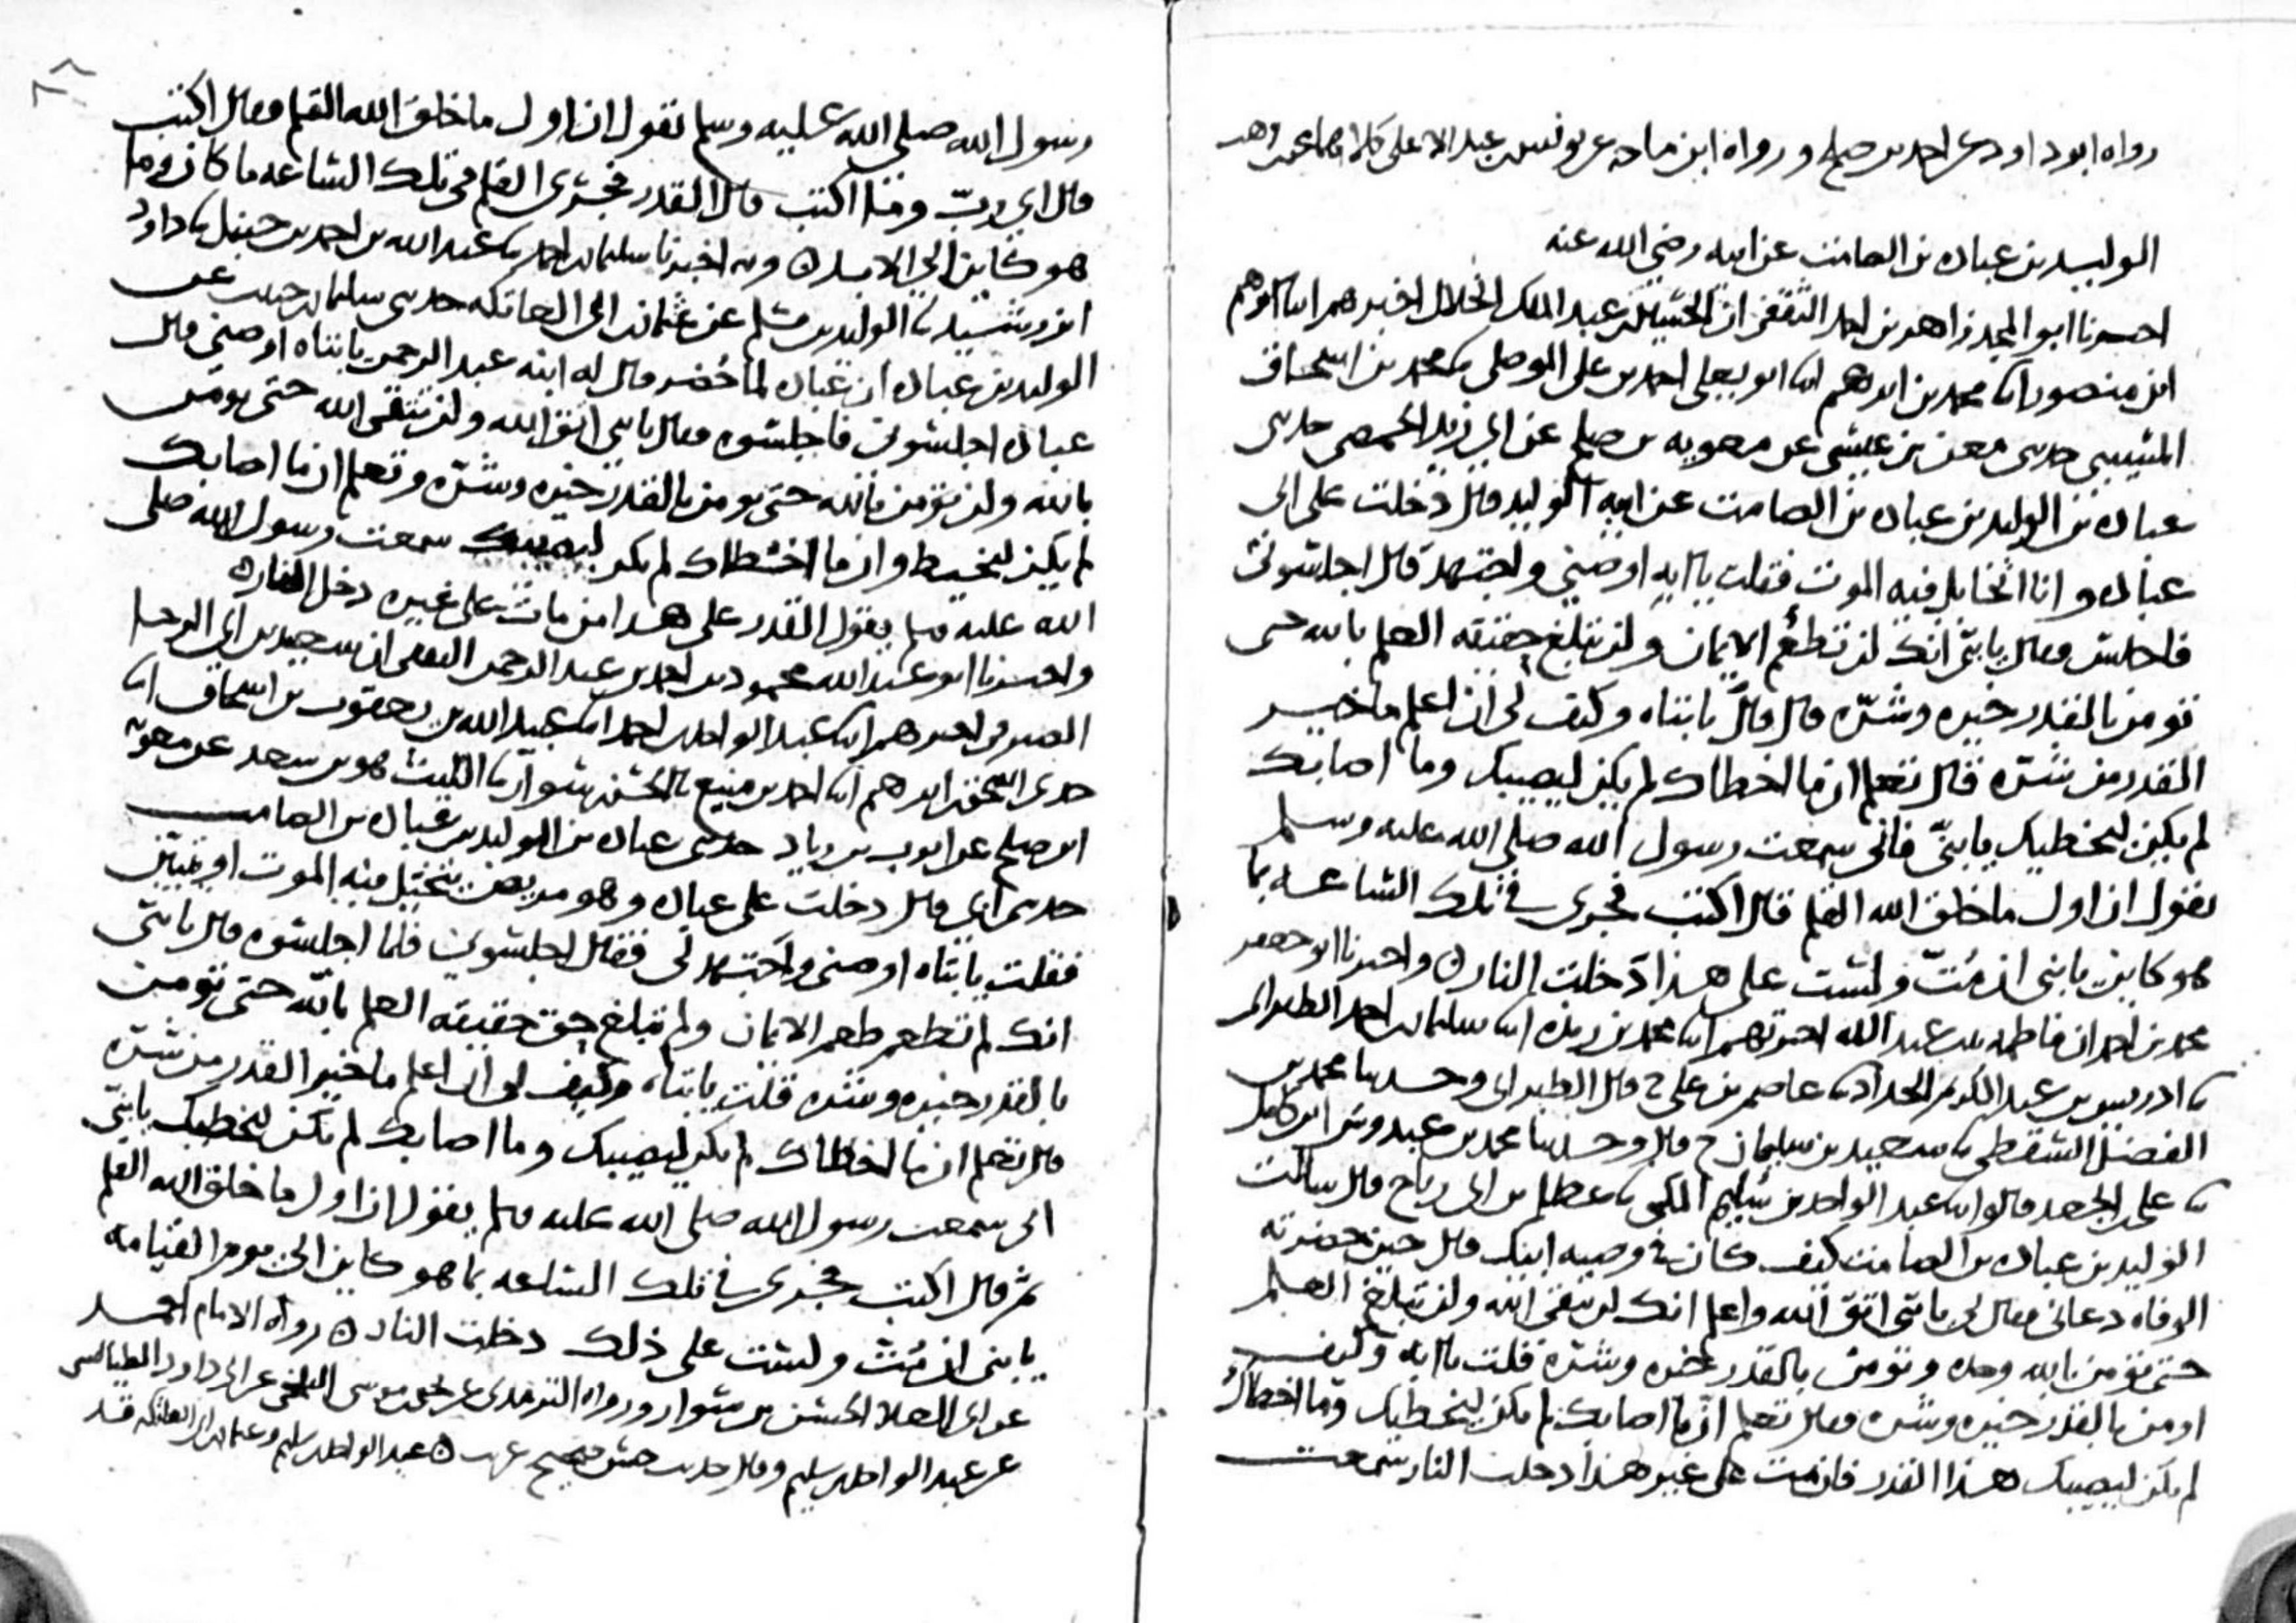 رواه ابو داود عن احمد بن صلح ورواه ابن ماجه عن يونس بن عبد الاعلى كلاهما عن ابن وهب
الوليد بن عباده بن الصامت عن ابيه رضي الله عنه
اخبرنا ابو المجد زاهر بن احمد الثقفي ان الحسين بن عبد الملك الخلال اخبرهم ابنا ابرهيم
ابن منصور ابنا محمد بن ابرهيم ابنا ابو يعلى احمد بن علي الموصلي ثنا محمد بن اسحاق
المسيبي حدثني معن بن عيسى عن معويه بن صلح عن ابي زيد الحمصي حدثني
عباده بن الوليد بن عباده بن الصامت عن ابيه الوليد قال دخلت على ابي
عباده وانا اتخايل فيه الموت فقلت يا ابه اوصني واجتهد قال اجلسوني
فاجلس فقال يا بني انك لن تطعم الايمان ولن تبلغ حقيقه العلم بالله حتى
تؤمن بالقدر خيره وشره قال قلت يا بتاه وكيف لي ان اعلم ما خير
القدر من شره قال تعلم ان ما اخطاك لم يكن ليصيبك وما اصابك
لم يكن ليخطيك يا بني فاني سمعت رسول الله صلى الله عليه وسلم
يقول ان اول ما خلق الله القلم قال اكتب فجرى في تلك الساعه بما
هو كاين يا بني ان مت ولست على هذا دخلت النار ه واخبرنا ابو جعفر
محمد بن احمد ان فاطمه بنت عبد الله اخبرتهم ابنا محمد بن ريذه ابنا سليمان بن احمد الطبراني
ثنا ادريس بن عبد الكريم الحداد ثنا عاصم بن علي ح قال الطبراني وحدثنا محمد بن
الفضل السقطي ثنا سعيد بن سليمان ح قال وحدثنا محمد بن عبدوس ابن كامل
ثنا علي بن الجعد قالوا ثنا عبد الواحد بن سليم المكي ثنا عطا بن ابي رباح قال سالت
الوليد بن عباده بن الصامت كيف كان في وصيه ابيك قال حين حضرته
الوفاه دعاني فقال لي يا بني اتق الله واعلم انك لن تتقي الله ولن تبلغ العلم
حتى تؤمن بالله وحده وتؤمن بالقدر خيره وشره قلت يا ابه وكيف
اومن بالقدر خيره وشره فقال تعلم ان ما اصابك لم يكن ليخطيك وما اخطاك
لم يكن ليصيبك هذا القدر فان مت على غير هذا دخلت النار سمعت
رسول الله صلى الله عليه وسلم يقول ان اول ما خلق الله القلم فقال اكتب
قال اي رب وما اكتب قال القدر فجرى القلم في تلك الساعه ما كان وما
هو كاين الى الابد ه وبه اخبرنا سليمان بن احمد ثنا عبد الله بن احمد بن حنبل ثنا داود
ابن رشيد ثنا الوليد بن مسلم عن عثمان بن ابي العاتكه حدثني سليمان بن حبيب عن
الوليد بن عباده ان عباده لما حضر قال له ابنه عبد الرحمن يا بتاه اوصني قال
عباده اجلسوني فاجلسوه فقال يا بني اتق الله ولن تتقي الله حتى تؤمن
بالله ولن تؤمن بالله حتى تؤمن بالقدر خيره وشره وتعلم ان ما اصابك
لم يكن ليخطيك وان ما اخطاك لم يكن ليصيبك سمعت رسول الله صلى
الله عليه وسلم يقول القدر على هذا من مات على غيره دخل النار ه
واخبرنا ابو عبد الله محمود بن احمد بن عبد الرحمن الثقفي ان سعيد بن ابي الرجا
الصيرفي اخبرهم ابنا عبد الواحد بن احمد ابنا عبيد الله بن يعقوب بن اسحاق ابنا
جدي اسحق بن ابرهيم ابنا احمد بن منيع ثنا الحسن بن سوار ثنا الليث هو بن سعد عن معويه
ابن صلح عن ايوب بن زياد حدثني عباده بن الوليد بن عباده بن الصامت
حدثني ابي قال دخلت على عباده وهو مريض يتخيل فيه الموت او يتبين
فقلت يا بتاه اوصني واجتهد لي فقال اجلسوني فلما اجلسوه قال يا بني
انك لم تطعم طعم الايمان ولم تبلغ حق حقيقه العلم بالله حتى تؤمن
بالقدر خيره وشره قلت يا بتاه وكيف لي ان اعلم ما خير القدر من شره
قال تعلم ان ما اخطاك لم يكن ليصيبك وما اصابك لم يكن ليخطيك يا بني
اني سمعت رسول الله صلى الله عليه وسلم يقول ان اول ما خلق الله القلم
ثم قال اكتب فجرى في تلك الساعه بما هو كاين الى يوم القيامه
يا بني ان مت ولست على ذلك دخلت النار ه رواه الامام احمد
عن ابي العلا الحسن بن سوار ورواه الترمذي عن يحيى بن موسى البلخي عن ابي داود الطيالسي
عن عبد الواحد بن سليم وقال حديث حسن صحيح غريب ه عبد الواحد بن سليم وعثمان بن ابي العاتكه قد